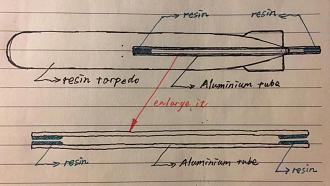 resin
resin
resin torpedo
Aluminium tube
enlarge it
resin
Aluminium tube
resin